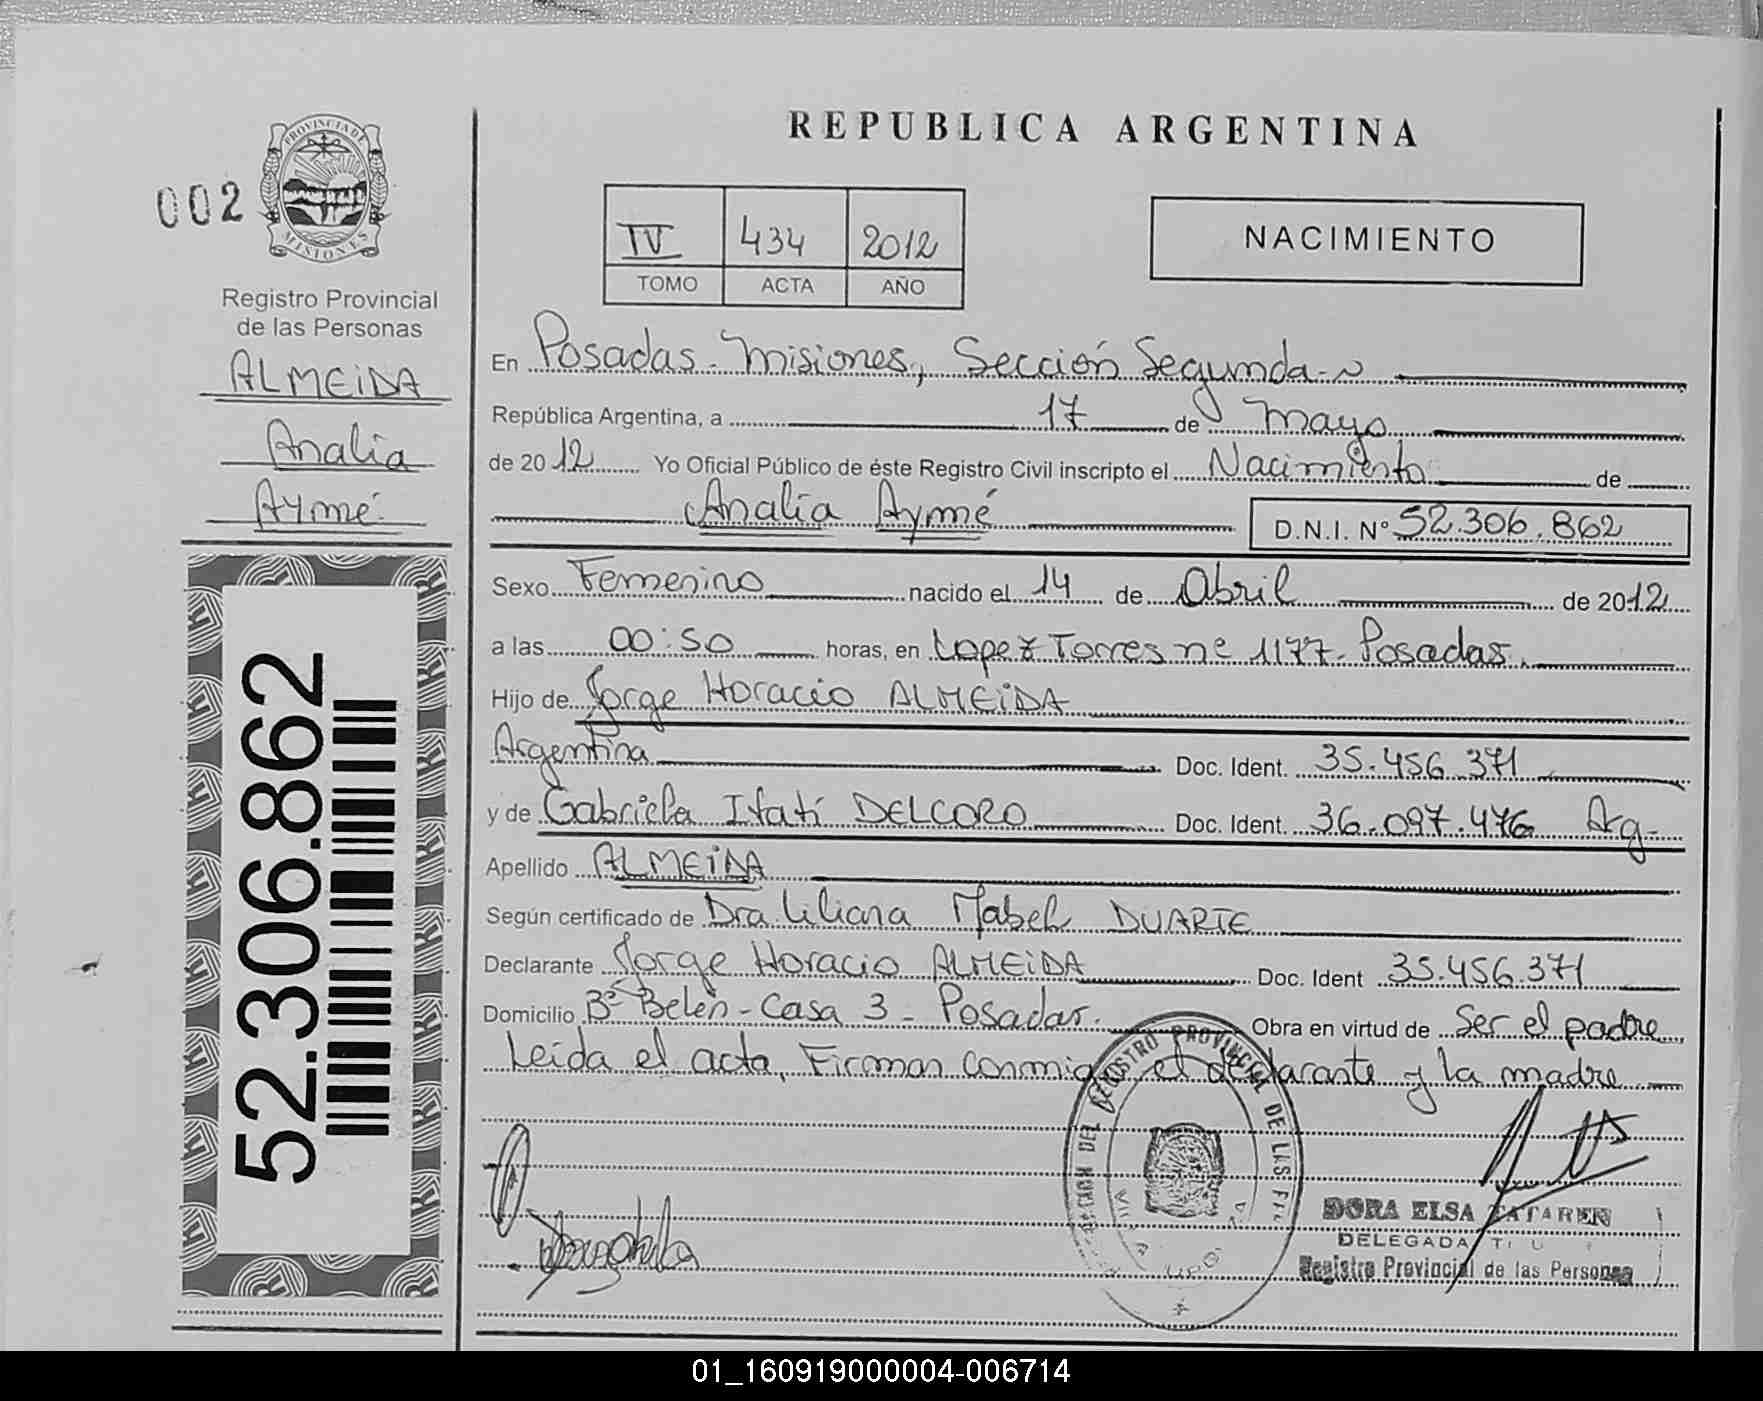 REPUBLICA ARGENTINA
002
PROVINCIA DE MISIONES
Registro Provincial
de las Personas
ALMEIDA
Analía
Aymé
52.306.862
IV 434 2012
TOMO ACTA AÑO
NACIMIENTO
En Posadas - Misiones, Sección Segunda
República Argentina, a 17 de Mayo
de 2012 Yo Oficial Público de éste Registro Civil inscripto el Nacimiento de
Analía Aymé D.N.I. N° 52.306.862
Sexo Femenino nacido el 14 de Abril de 2012
a las 00:50 horas, en Lopez Torres nº 1177 - Posadas.
Hijo de Jorge Horacio ALMEIDA
Argentina Doc. Ident. 35.456.371
y de Gabriela Itatí DELCORO Doc. Ident. 36.097.476 Arg-
Apellido ALMEIDA
Según certificado de Dra. Liliana Mabel DUARTE
Declarante Jorge Horacio ALMEIDA Doc. Ident 35.456.371
Domicilio Bº Belén - Casa 3 - Posadas. Obra en virtud de Ser el padre
Leída el acta, Firman conmigo el declarante y la madre
REGISTRO PROVINCIAL DE LAS
DORA ELSA
DELEGADA
Registro Provincial de las Personas
01_160919000004-006714